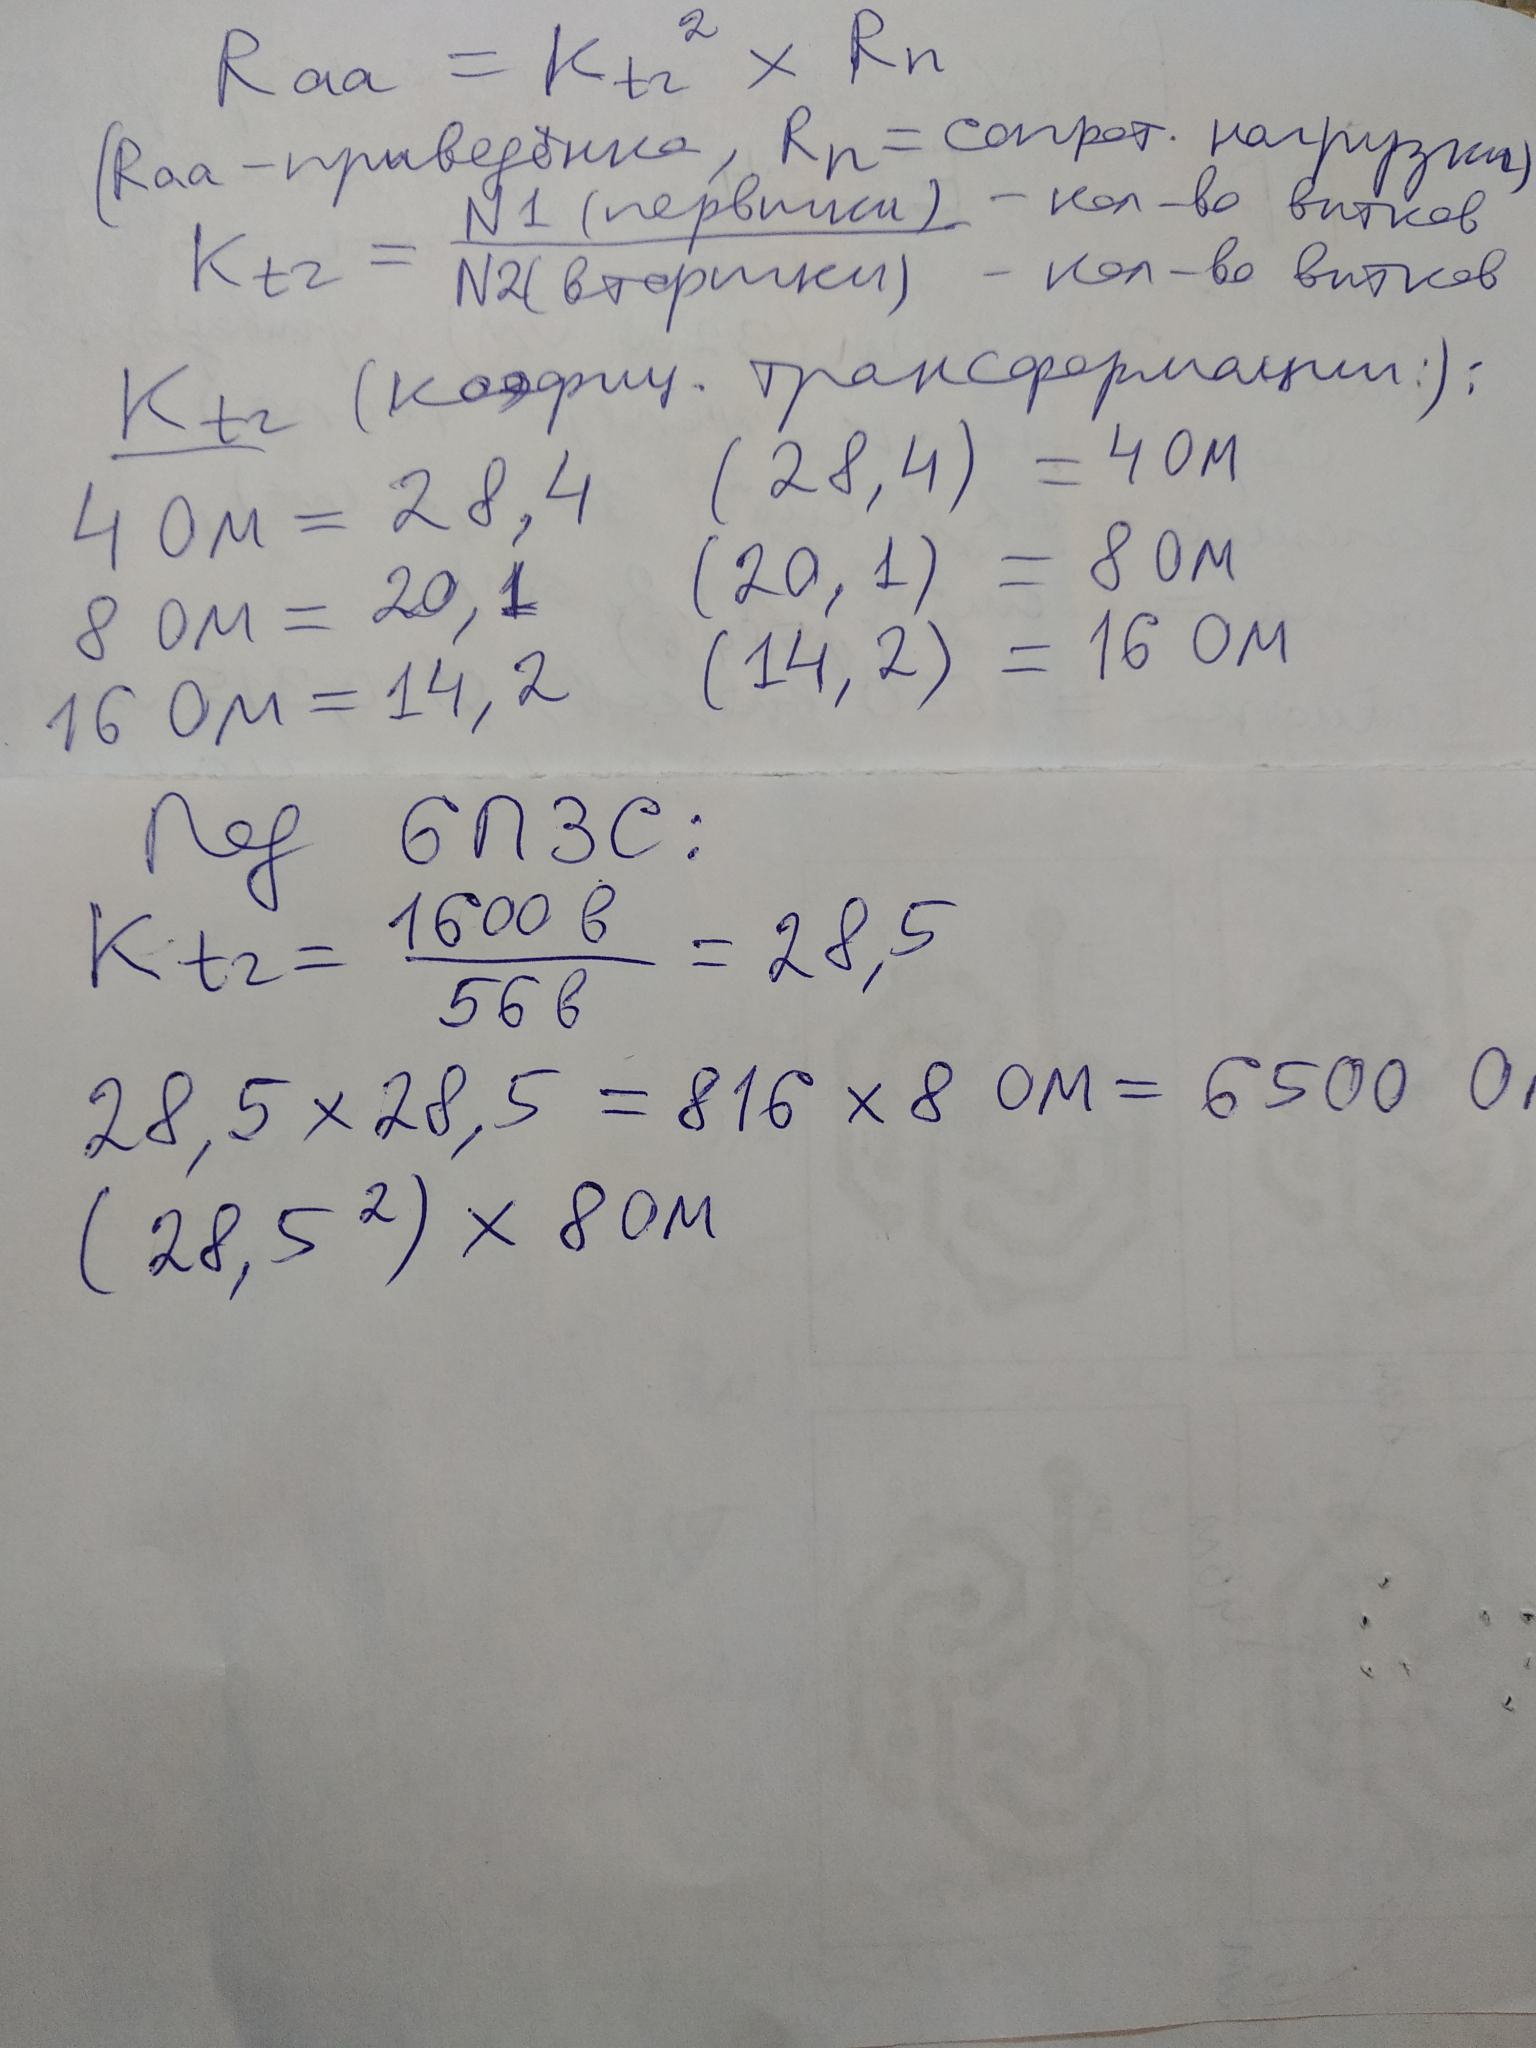 Raa = Ktr² × Rn
(Raa - приведёнка, Rn = сопрот. нагрузки)
Ktr = N1 (первички) - кол-во витков
N2 (вторички) - кол-во витков
Ktr (коэфиц. трансформации:):
4 Ом = 28,4 (28,4) = 4 Ом
8 Ом = 20,1 (20,1) = 8 Ом
16 Ом = 14,2 (14,2) = 16 Ом
Под 6П3С:
Ktr = 1600 в / 56 в = 28,5
28,5 × 28,5 = 816 × 8 Ом = 6500 Ом
(28,5²) × 8 Ом